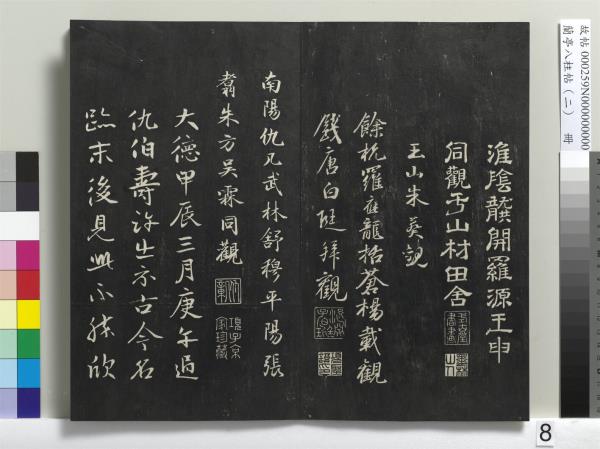 淮陰龔開羅源王申
同觀于山村田舍
玉山朱英觀
餘杭羅 龍 蒼楊載觀
錢唐白珽拜觀
南陽仇几武林舒穆平陽張
翥朱方吳霖同觀
大德甲辰三月庚午過
仇伯壽許出示古今名
臨末後見此不勝欣
項子京
家珍藏
故帖 000259N000000000
蘭亭八柱帖(二) 冊
8